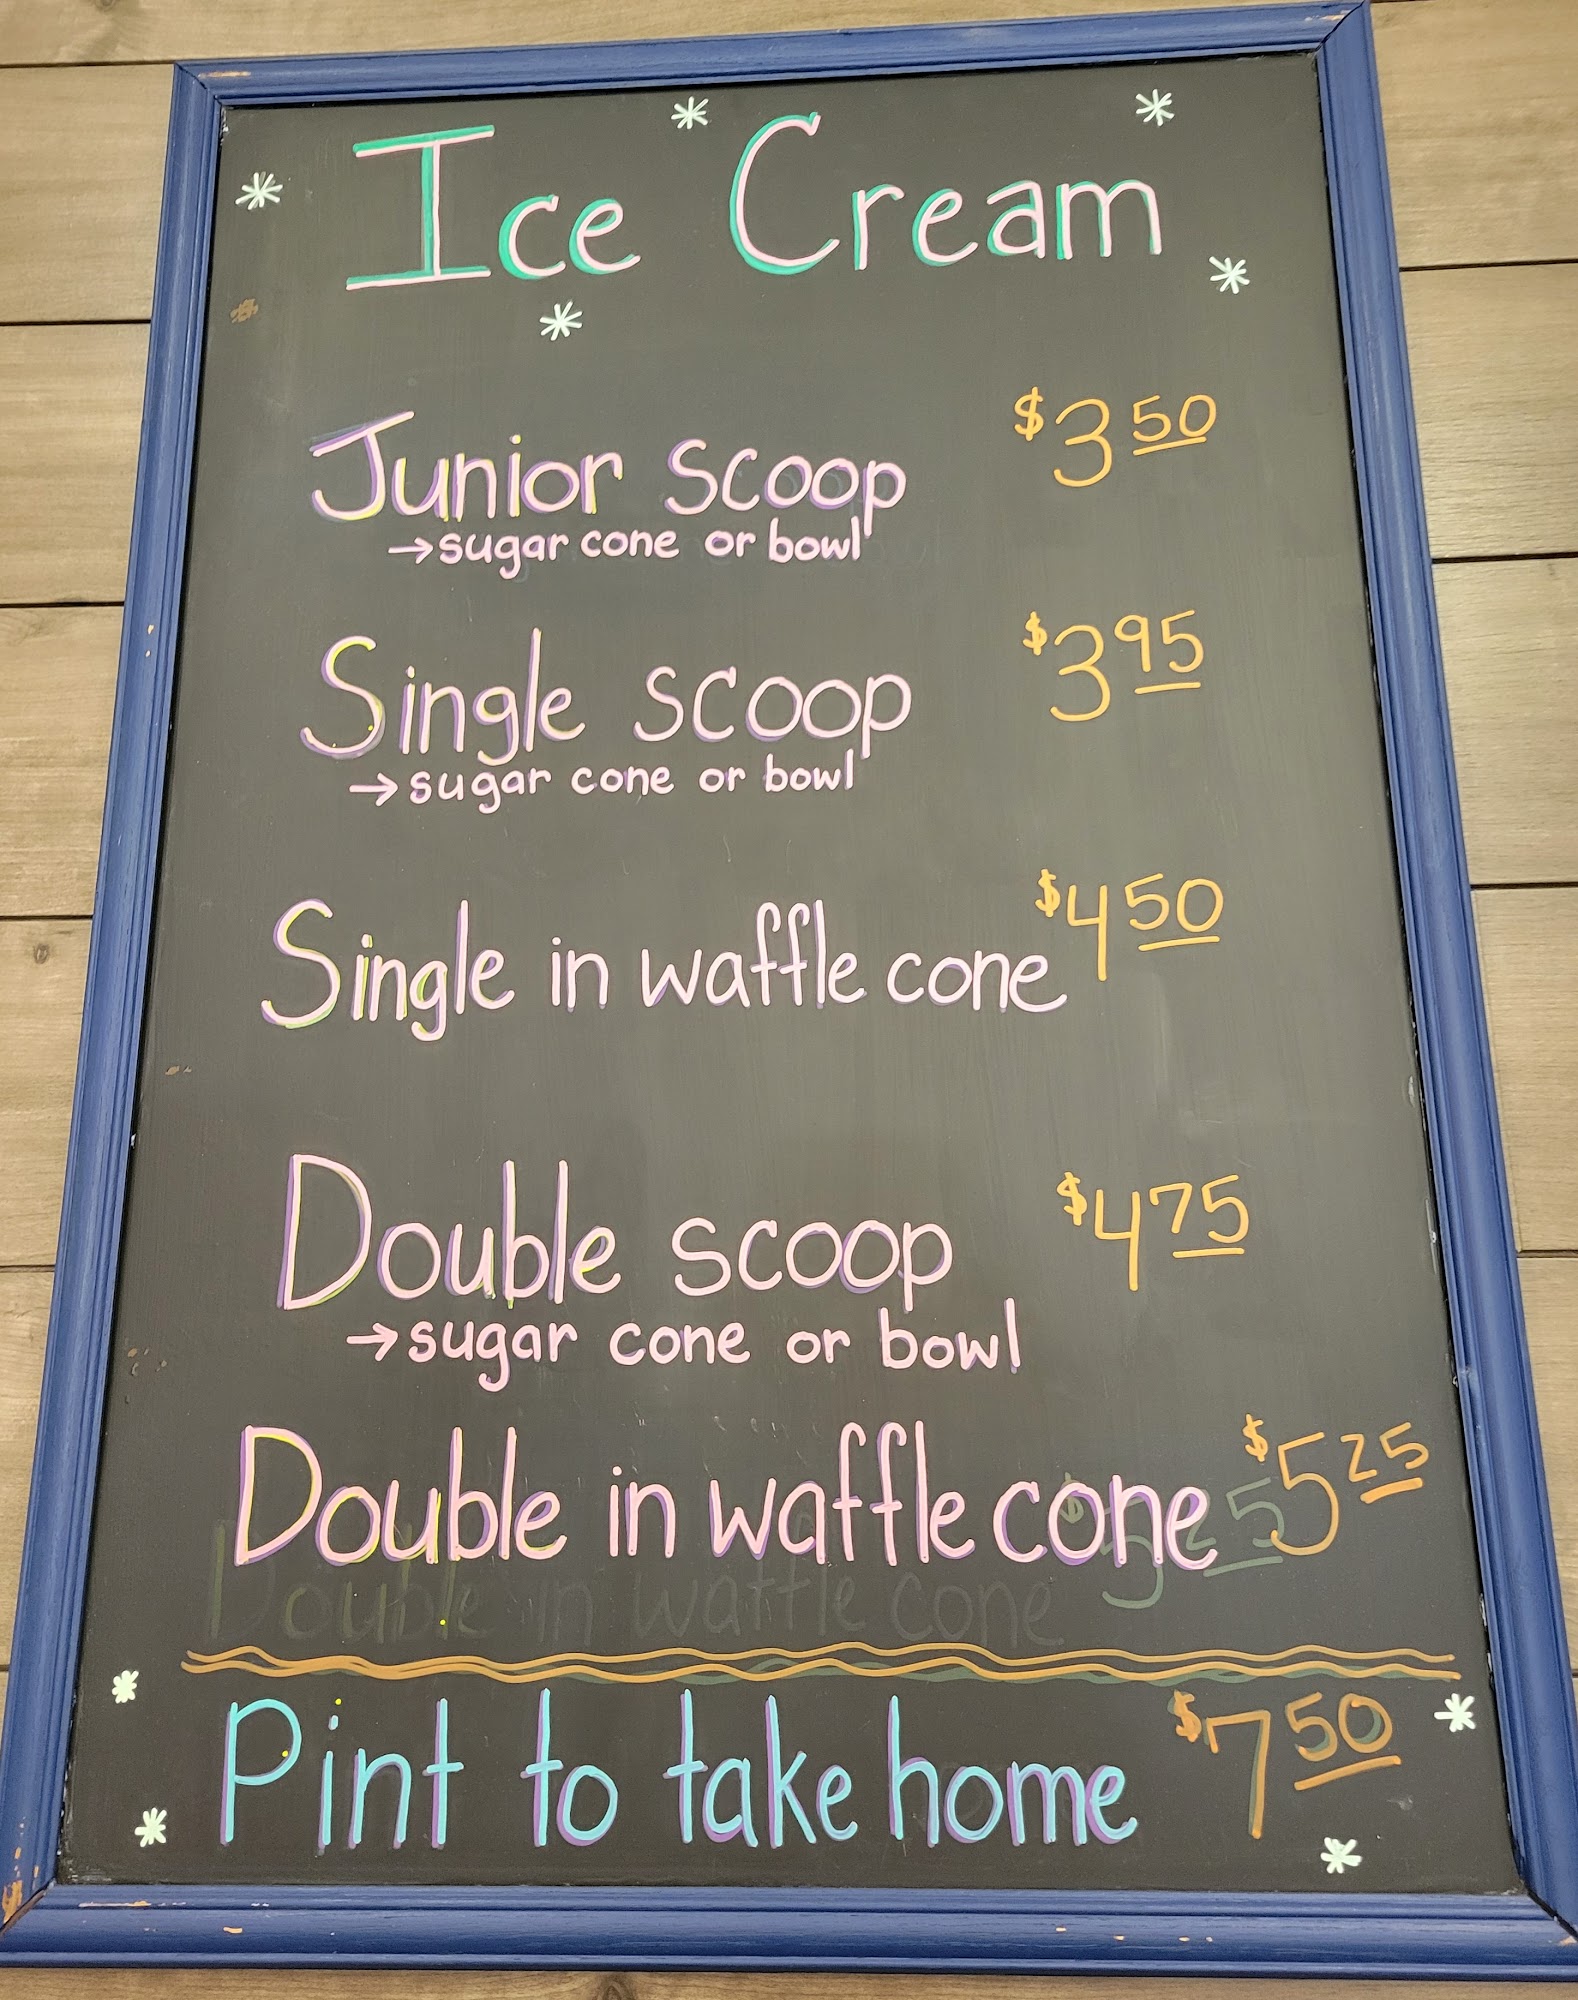 Ice Cream
Junior scoop $3.50
→sugar cone or bowl
Single scoop $3.95
→sugar cone or bowl
Single in waffle cone $4.50
Double scoop $4.75
→sugar cone or bowl
Double in waffle cone $5.25
Double in waffle cone $5.25
Pint to take home $7.50